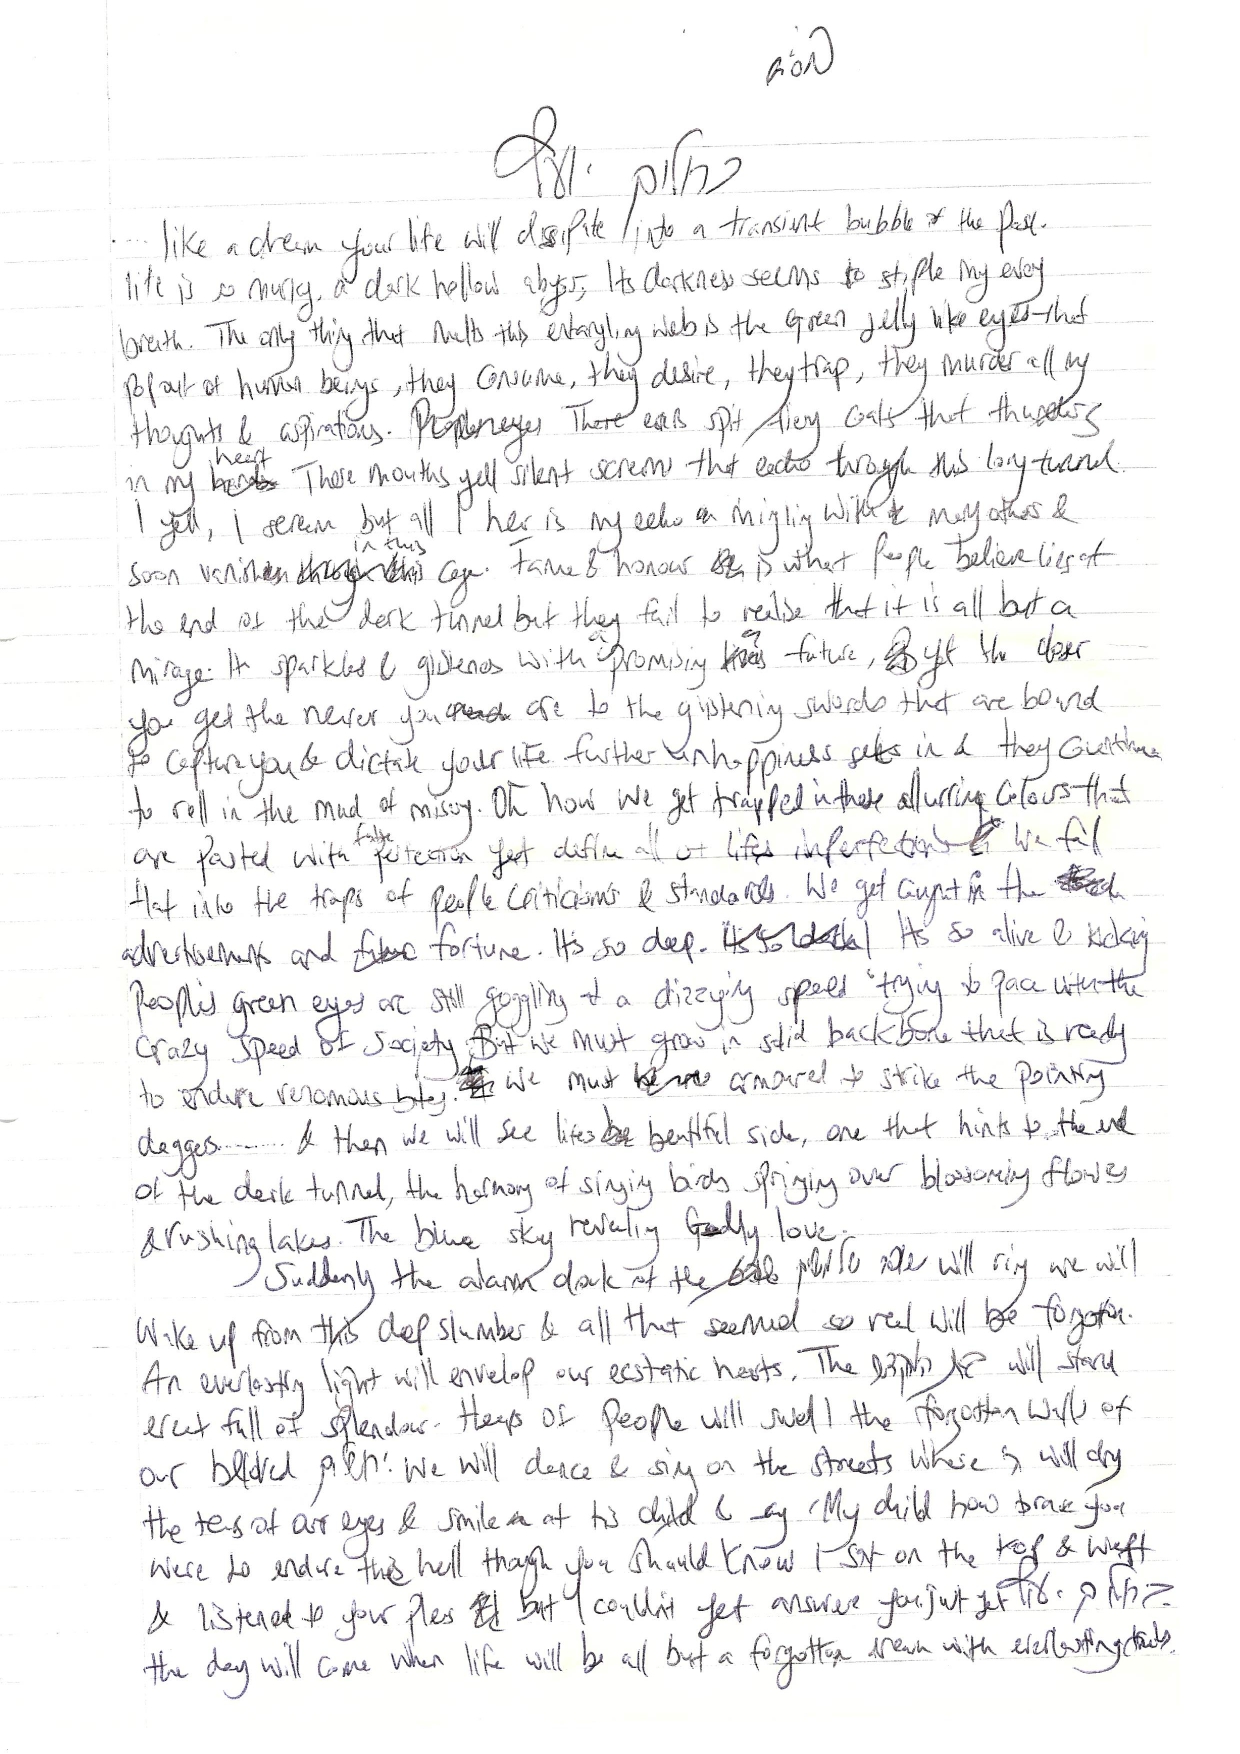 בס"ד
כחלום יעוף
.... like a dream your life will dissipate into a transient bubble of the past.
life is so murky, a dark hollow abyss, Its darkness seems to stifle my every
breath. The only thing that melts this entangling web is the Green jelly like eyes that
pop out of human beings, they consume, they desire, they trap, they murder all my
thoughts & aspirations. There ears spit fiery coals that
in my heart There mouths yell silent screams that echo through this long tunnel.
I yell, I scream but all I her is my echo mingling with many others &
soon vanishes in this cage. Fame & honour is what people believe lies at
the end of the dark tunnel but they fail to realise that it is all but a
mirage. It sparkles & glistens with a promising future, yet the closer
you get the nearer you are to the glistening swords that are bound
to capture you & dictate your life further unhappiness sets in & they continue
to roll in the mud of misery. Oh how we get trapped in these allurring colours that
are pasted with false perfection yet define all of lifes imperfections We fall
flat into the traps of people criticisms & standards. We get caught in the
advertisements and fortune. It's so deep. It's so alive & kicking
People's green eyes are still goggling at a dizzying speed trying to pace with the
crazy speed of society. But we must grow in solid backbone that is ready
to endure venomous bites. We must armoured to strike the pointing
daggers....... & then we will see lifes beautiful side, one that hints to the end
of the dark tunnel, the harmony of singing birds springing over blossoming flowers
& rushing lakes. The blue sky revealing Godly love.
Suddenly the alarm clock of the will ring we will
Wake up from this deep slumber & all that seemed so real will be forgotten.
An everlasting light will envelop our ecstatic hearts. The בית המקדש will stand
erect full of splendour. Heaps of people will swell the forgotten walls of
our beloved ירושלים. We will dance & sing on the streets where ה' will dry
the tears of our eyes & smile at his child & say 'My child how brave you
were to endure this hell though you should know I sat on the top & wept
& listened to your pleas but I couldn't yet answer you just yet כחלום יעוף
the day will come when life will be all but a forgotten dream with everlasting